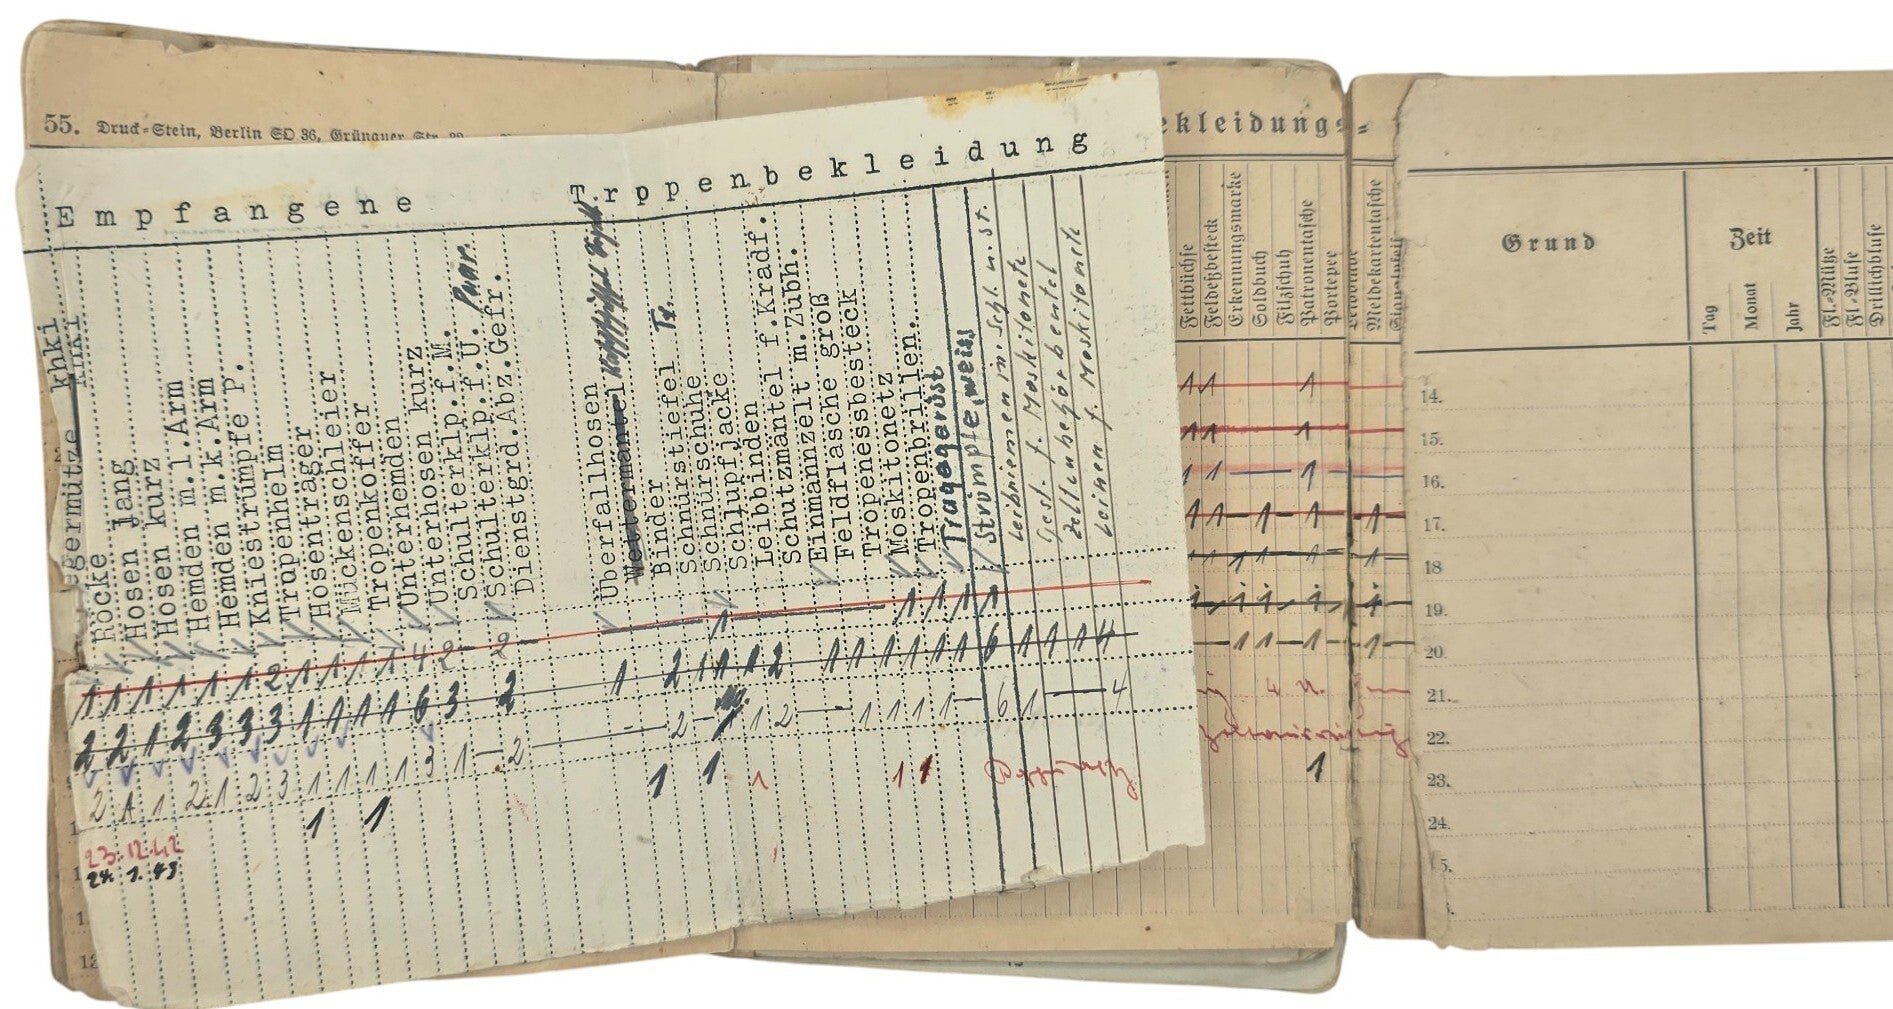 55. Druck-Stein, Berlin SO 36, Grünauer Str.
Empfangene Tropenbekleidung
khki
khki
Röcke
Hosen lang
Hosen kurz
Hemden m.l.Arm
Hemden m.k.Arm
Kniestrümpfe P.
Truppenhelm
Hosenträger
Mückenschleier
Tropenkoffer
Unterhemden
Unterhosen kurz
Schulterklp.f.M.
Schulterklp.f.U. Paar.
Dienstgrd.Abz.Gefr.
Überfallhosen
Wettermantel
Binder
Schnürstiefel Tr.
Schnürschuhe
Schlupfjacke
Leibbinden
Schutzmäntel f.Kradf.
Einmannzelt m.Zubh.
Feldflasche groß
Tropenessbesteck
Moskitonetz
Tropenbrillen.
Tragegerüst
Strümpfe, weiss
Leibriemen m. Schl. u. St.
Gest. f. Moskitonetz
Zeltzubehörbeutel
Leinen f. Moskitonetz
1 1 1 1 1 1 2 1 1 1 1 4 2 2 1 1 1 1 1
2 2 1 2 3 3 3 1 1 1 1 6 3 2 1 2 1 1 1 2 1 1 1 1 1 1 6 1 1 1 4
2 1 1 2 1 2 3 1 1 1 1 3 1 2 2 1 2 1 1 1 1 6 1 4
23.12.42 1 1 1
24. 1. 43 1 1 1 1
ekleidungs-
Fettbüchse
Feldeßbesteck
Erkennungsmarke
Soldbuch
Filzschuh
Patronentasche
Portepee
Meldekartentasche
1 1 1
1 1 1
1 1 1
1 1 1 1 1
1 1 1 1 1 1
1 1 1 1 1
1 1 1 1
1
Grund
Zeit
Tag
Monat
Jahr
Fl.-Mütze
Fl-Bluse
Drillichbluse
14.
15.
16.
17.
18
19.
20.
21.
22.
23.
24.
5.